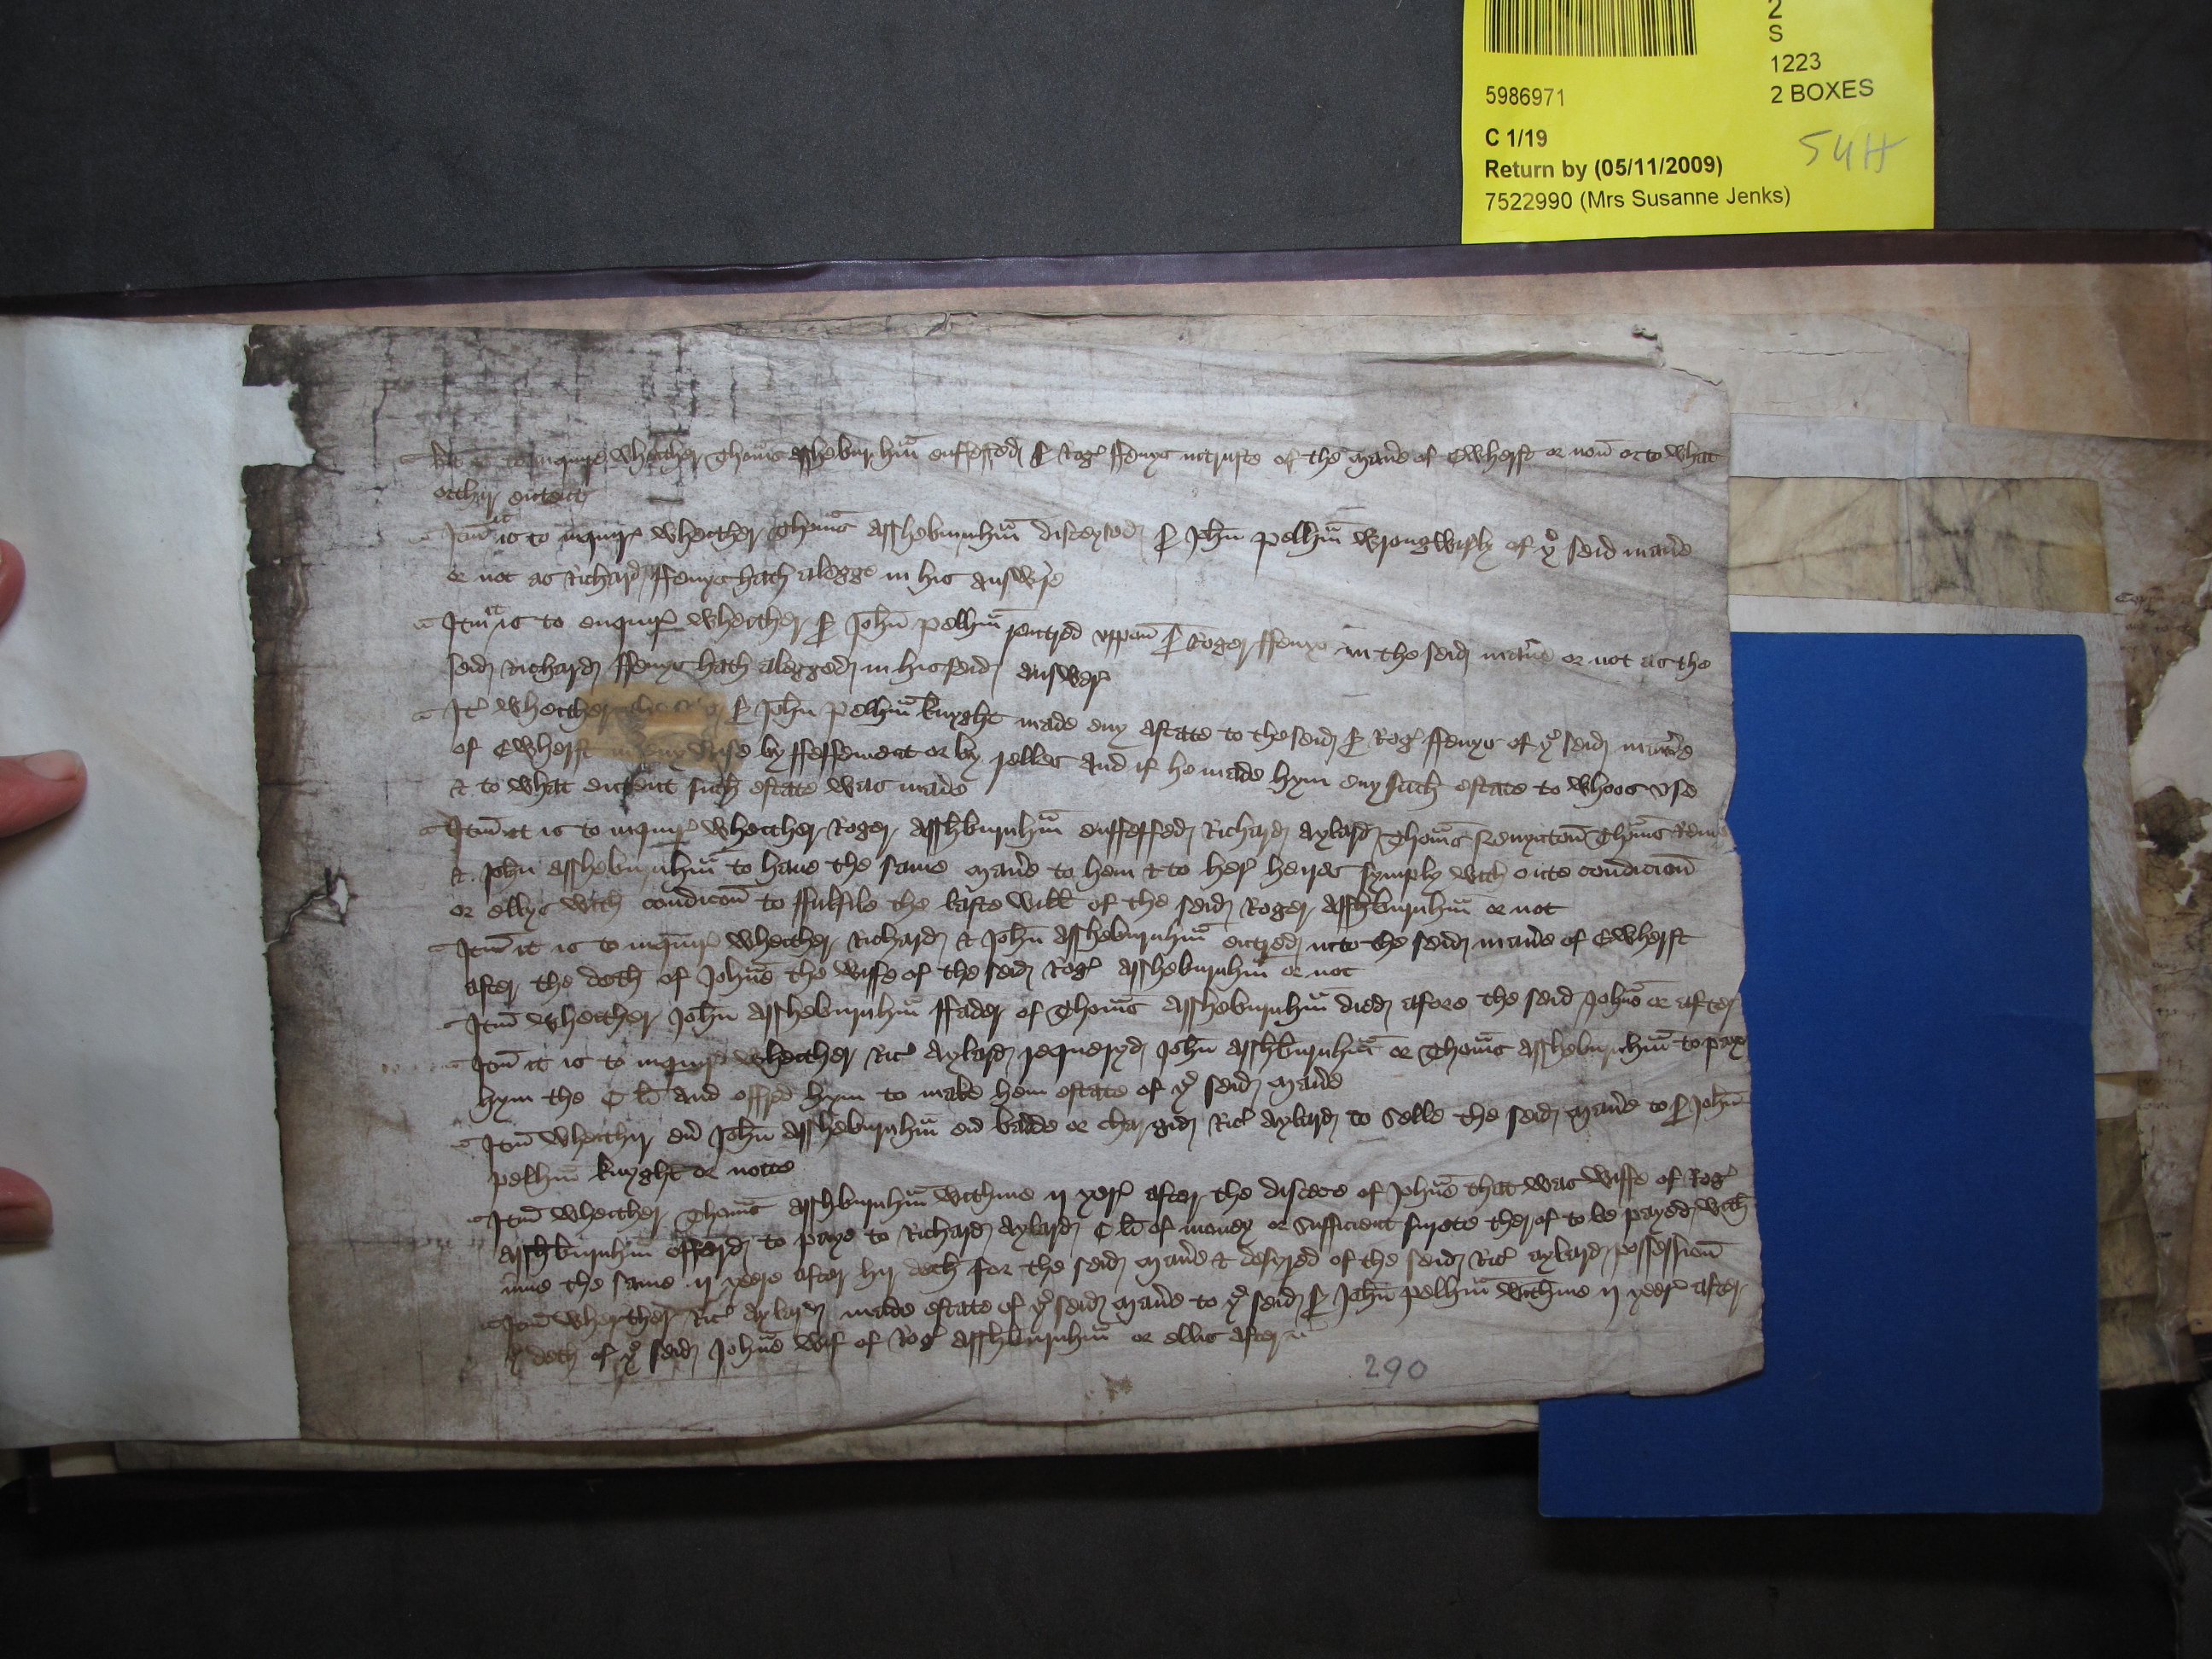 2
S
1223
5986971 2 BOXES
C 1/19
54H
Return by (05/11/2009)
7522990 (Mrs Susanne Jenks)
it is to inquire whether Thomas Assheburnhm̄ enfeffed Sr Rogr ffenys of the manere of Ewherst or non or to what
othir entent
Itm̄ it is to inquire whether Thomas Assheburnhm̄ Sr John Pelhm̄ wrongwisly of ye seid manere
or not as Richard ffenys hath alegge in his answere
Itm̄ it is to enquire whether Sr John Pelhm̄ entred uppon Sr Roger ffenys in the seid manere or not as the
seid Richard ffenys hath alegged in his seid answere
It whether Sr John Pelhm̄ knyght made eny astate to the seid Sr Rogr ffenys of ye seid manere
of Ewherst by ffeffement or by relles and if he made hym eny such estate to whoos use
& to what entent such estate was made
Itm̄ it is to inquire whether Roger Asshburnhm̄ enffeffed Richard Aylard Thomas Thomas
& John Assheburnhm̄ to have the same manere to hem & to her heires symply with oute condicion
or ellys with condicon to ffulfile the laste will of the seid Roger Asshburnhm̄ or not
Itm̄ it is to inquire whether Richard & John Assheburnhm̄ entred into the seid manere of Ewherst
after the deth of Johne the wiffe of the seid Rogr Assheburnhm̄ or not
Itm̄ whether John Assheburnhm̄ ffader of Thomas Assheburnhm̄ died afore the seid Johne or after
Itm̄ it is to inquire whether Ric Aylard requeryd John Asshburnhm̄ or Thomas Assheburnhm̄ to pay
hym the C li and offred hym to make hem estate of ye seid manere
Itm̄ whethir John Assheburnhm̄ badde or chargid Ric Aylard to selle the seid manere to Sr John
Pelhm̄ knyght or notte
Itm̄ whether Thomas Asshburnhm̄ withine ij yere after the discece of Johne that was wiffe of Rogr
Asshburnhm̄ offerd to paye to Richard Aylard C li of money or sufficient surete therof to be payed with
inne the same ij yeere after hir deth for the seid manere & desyred of the seid Ric Aylard possession
Itm̄ whether Ric Aylard made estate of ye seid manere to ye seid Sr John Pelhm̄ withine ij yeer after
ye deth of ye seid Johne wif of Rogr Asshburnhm̄ or ellis after
290